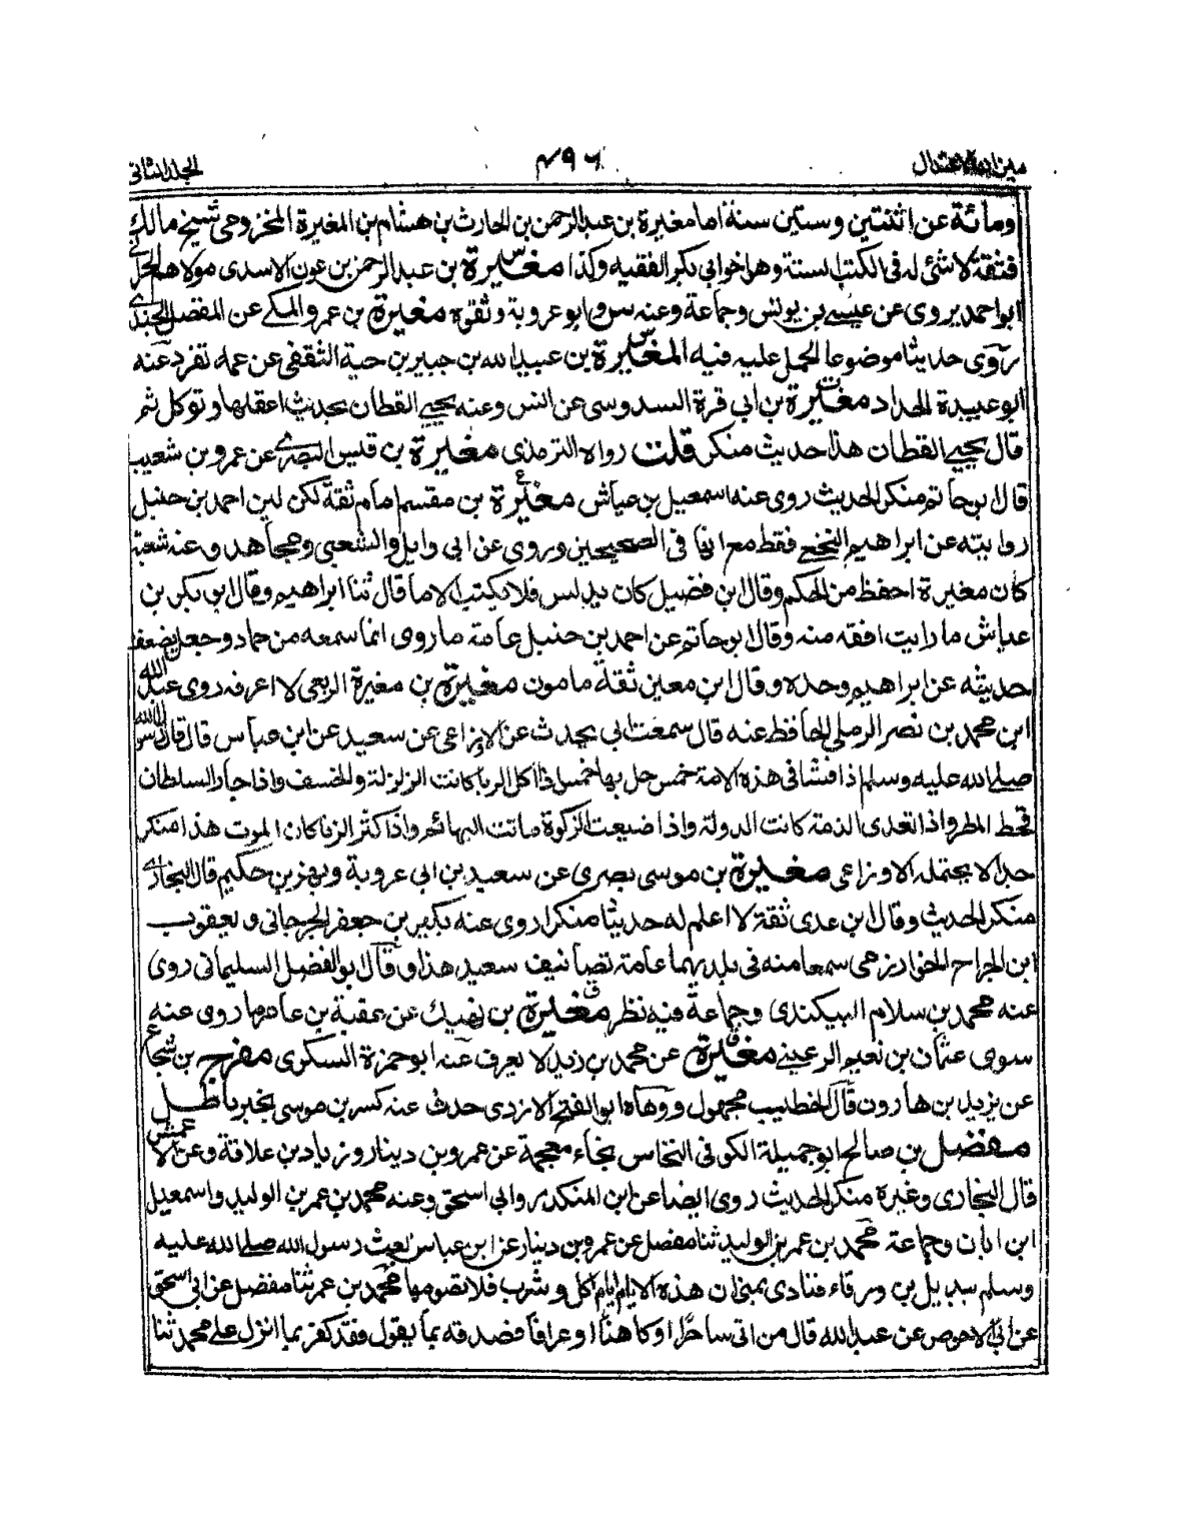 ميزان الاعتدال ٤٩٦ المجلد الثاني
ومائة عن اثنتين وستين سنة اما مغيرة بن عبد الرحمن بن الحارث بن هشام بن المغيرة المخزومي شيخ مالك
فثقة لا شئ له في الكتب الستة وهو اخو ابي بكر الفقيه وكذا مغيرة بن عبد الرحمن بن عون الاسدى مولاهم الحراني
ابو احمد يروى عن عيسى بن يونس وجماعة وعنه س وابو عروبة وثقوه مغيرة بن عمرو المكي عن المفضل الجندى
روى حديثا موضوعا الحمل عليه فيه المغيرة بن عبيد الله بن جبير بن حية الثقفي عن عمه تفرد عنه
ابو عبيدة الحداد مغيرة بن ابي قرة السدوسى عن انس وعنه يحيى القطان بحديث اعقلها وتوكل ثم
قال يحيى القطان هذا حديث منكر قلت رواه الترمذى مغيرة بن قيس البصرى عن عمرو بن شعيب
قال ابن حاتم منكر الحديث روى عنه اسمعيل بن عياش مغيرة بن مقسم امام ثقة لكن لين احمد بن حنبل
روايته عن ابراهيم النخعى فقط مع انها في الصحيحين وروى عن ابى وايل والشعبي ومجاهد وعنه شعبة
كان مغيرة احفظ من الحكم وقال ابن فضيل كان يدلس فلا نكتب الا ما قال ثنا ابراهيم وقال ابى بكر بن
عياش ما رايت افقه منه وقال ابو حاتم عن احمد بن حنبل عامة ما روى انما سمعه من حماد وجعل يضعف
حديثه عن ابراهيم وحده وقال ابن معين ثقة مامون مغيرة بن مغيرة الربعى لا اعرفه روى عبد الله
ابن محمد بن نصر الرملي الحافظ عنه قال سمعت ابى يحدث عن الاوزاعي عن سعيد عن ابن عباس قال قال رسول الله
صلى الله عليه وسلم اذا فشا في هذه الامة خمس حل بها خمس اذا اكل الربا كانت الزلزلة والخسف واذا جار السلطان
قحط المطر واذا تعدى الذمة كانت الدولة واذا ضيعت الزكوة ماتت البهائم واذا كثر الزنا كان الموت هذا منكر
جدا لا يحتمله الاوزاعى مغيرة بن موسى بصرى عن سعيد بن ابي عروبة وبهز بن حكيم قال البخارى
منكر الحديث وقال ابن عدى ثقة لا اعلم له حديثا منكرا روى عنه بكير بن جعفر الجرجانى ويعقوب
ابن الجراح الخوارزمى سمعا منه في بلديهما عامة تصانيف سعيد هذا وقال ابو الفضل السليمانى روى
عنه محمد بن سلام البيكندى وجماعة فيه نظر مغيرة بن نهيك عن عقبة بن عامر ما روى عنه
سوى عثمان بن نعيم الرعيني مغيرة عن محمد بن زيد لا يعرف عنه ابو حمزة السكرى مفرج بن شجاع
عن يزيد بن هارون قال الخطيب مجهول ووهاه ابو الفتح الازدى حدث عنه كسر بن موسى بخبر باطل
مفضل بن صالح ابو جميلة الكوفى النخاس بخاء معجمة عن عمرو بن دينار وزياد بن علاقة وعن الاعمش
قال البخارى وغيره منكر الحديث روى ايضا عن ابن المنكدر وابي اسحق وعنه محمد بن عمر بن الوليد واسمعيل
ابن ابان وجماعة محمد بن عمر بن الوليد ثنا مفضل عن عمرو بن دينار عن ابن عباس بعث رسول الله صلى الله عليه
وسلم بديل بن ورقاء فنادى بمنى ان هذه الايام ايام اكل وشرب فلا تصوموها محمد بن عمر ثنا مفضل عن ابى اسحق
عن ابي الاحوص عن عبد الله قال من اتى ساحرا او كاهنا او عرافا فصدقه بما يقول فقد كفر بما انزل على محمد ثنا